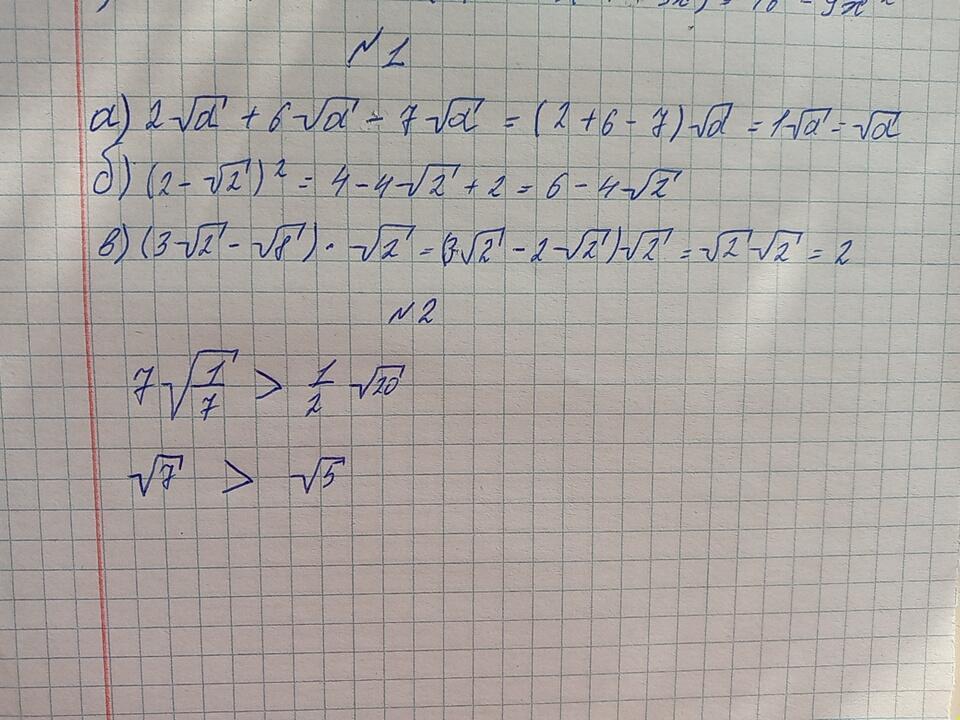 №1
а) 2√a + 6√a - 7√a = (2+6-7)√a = 1√a = √a
б) (2-√2)² = 4-4√2+2 = 6-4√2
в) (3√2 - √8)·√2 = (3√2 - 2√2)√2 = √2√2 = 2
№2
7√(1/7) > 1/2 √20
√7 > √5